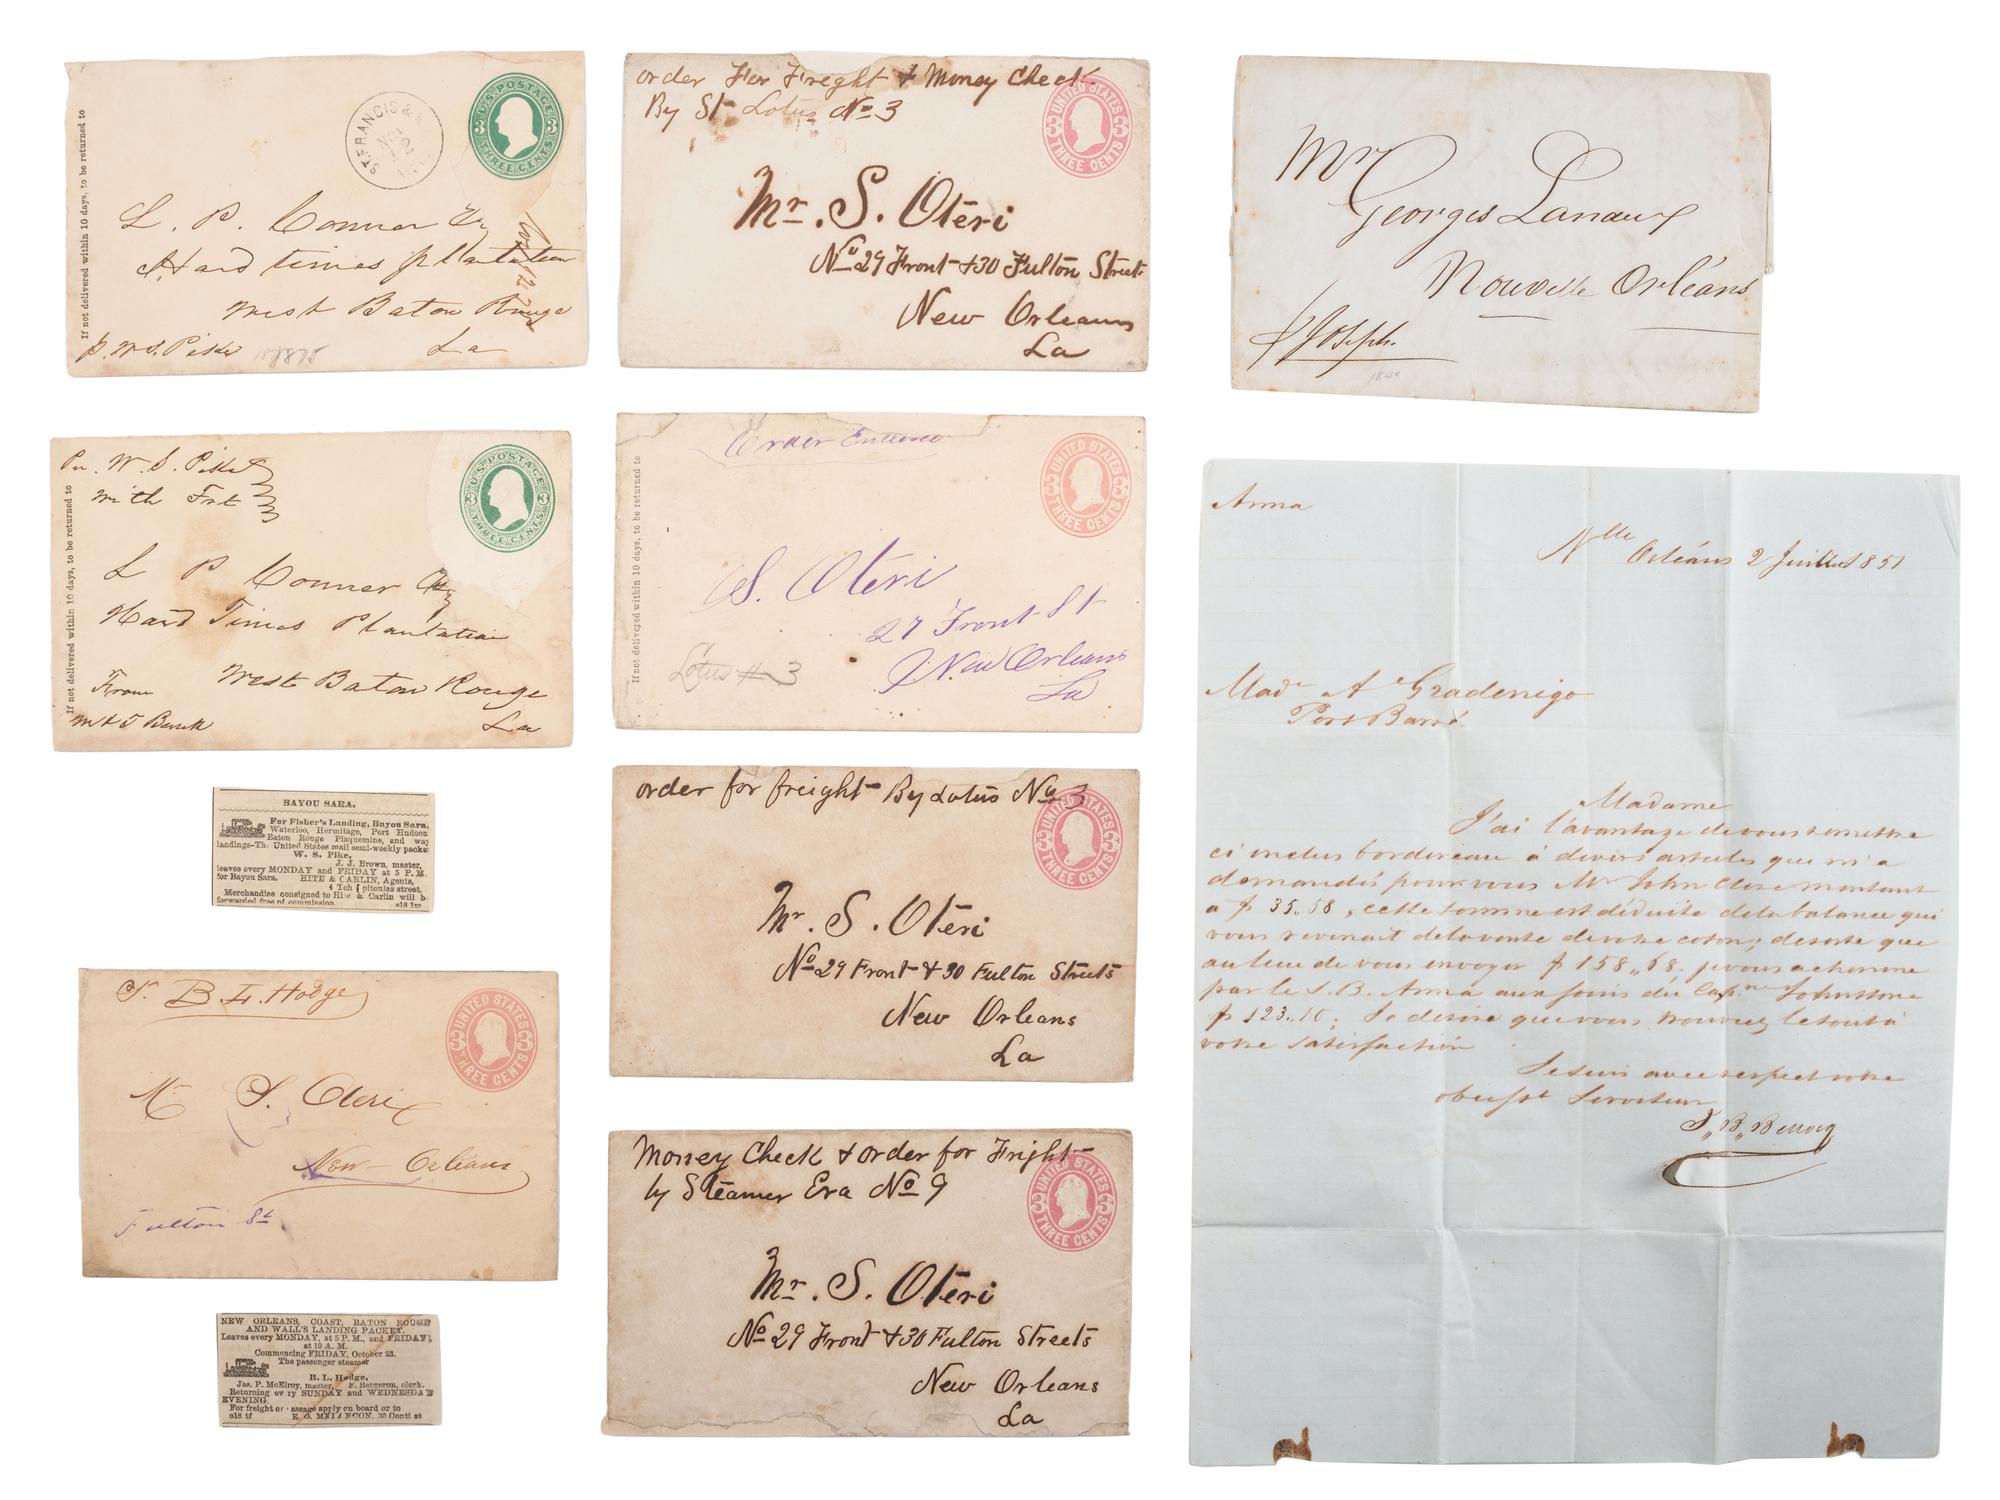 If not delivered within 10 days, to be returned to
ST. FRANCIS
U.S. POSTAGE
3 3
THREE CENTS
L. P. Conner
Hard times plantation
West Baton Rouge
La
p. W. S. Pike
Per W. S. Pike
with Frt
If not delivered within 10 days, to be returned to
U.S. POSTAGE
3 3
THREE CENTS
L P Conner
Hard Times Plantation
West Baton Rouge
La
From
BAYOU SARA.
For Fisher's Landing, Bayou Sara,
Waterloo, Hermitage, Port Hudson
Baton Rouge Plaquemine, and way
landings-Th United States mail semi-weekly packe
W. S. Pike,
J. J. Brown, master,
leaves every MONDAY and FRIDAY at 5 P.M.
for Bayou Sara. HITE & CARLIN, Agents,
4 Tch pitoulas street.
Merchandise consigned to Hite & Carlin will b
forwarded free of commission. o18 1m
B. L. Hodge
UNITED STATES
3 3
THREE CENTS
Mr S. Oteri
New Orleans
Fulton St
NEW ORLEANS, COAST, BATON ROUGE
AND WALL'S LANDING PACKET.
Leaves every MONDAY, at 5 P.M., and FRIDAY,
at 10 A. M.
Commencing FRIDAY, October 23.
The passenger steamer
B. L. Hodge,
Jas. P. McElroy, master, F. Bergeron, clerk.
Returning ev ry SUNDAY and WEDNESDAY
EVENING.
For freight or assage apply on board or to
o18 tf E. O. MELANCON, 30 Conti st
order For Freight & Money Check
By St Lotus No 3
UNITED STATES
3 3
THREE CENTS
Mr. S. Oteri
No 29 Front & 30 Fulton Streets
New Orleans
La
Order Enclosed
If not delivered within 10 days, to be returned to
UNITED STATES
3 3
THREE CENTS
S. Oteri
27 Front St
New Orleans
La
Lotus # 3
order for freight By Lotus No 3
UNITED STATES
3 3
THREE CENTS
Mr. S. Oteri
No 29 Front & 30 Fulton Streets
New Orleans
La
Money Check & order for Freight
by Steamer Era No 9
UNITED STATES
3 3
THREE CENTS
Mr. S. Oteri
No 29 Front & 30 Fulton Streets
New Orleans
La
Mr
Georges Lanaux
Nouvelle Orléans
p Joseph.
Anna
Nlle Orléans 2 Juillet 1851
Made A Gradenigo
Port Barré
Madame
J'ai l'avantage de vous remettre
ci inclus bordereau à divers articles que m'a
demandés pour vous Mr John Close montant
a $ 35.58, cette somme est déduite de la balance qui
vous revenait de la vente de votre coton; de sorte que
au lieu de vous envoyer $ 158.68. je vous achemine
par le S.B. Anna aux soins du Capne Johnstone
$ 123.10; Je desire que vous trouviez le tout à
votre satisfaction
Je suis avec respect votre
obeisst Serviteur